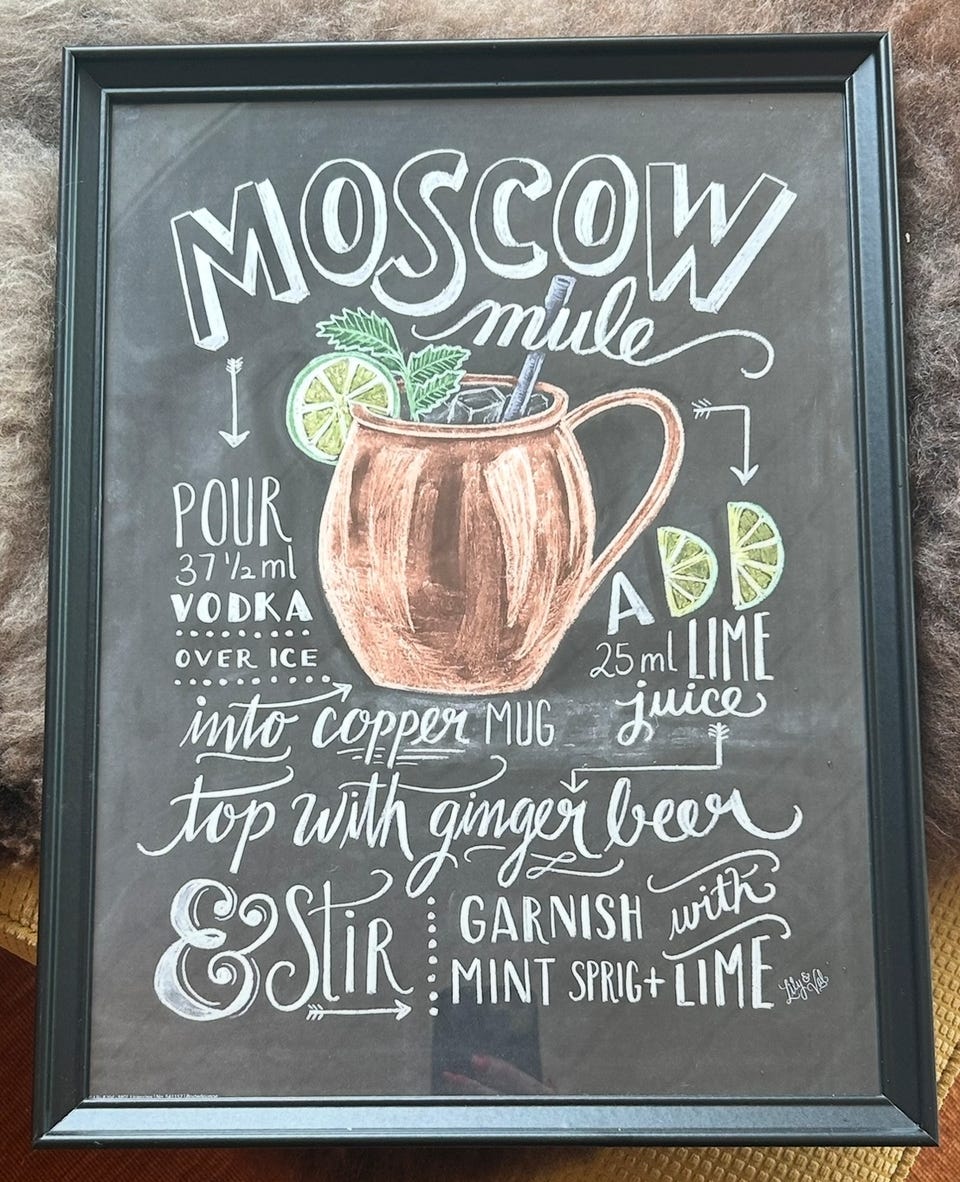 MOSCOW
mule
POUR
37 1/2 ml
VODKA
OVER ICE
into copper MUG
ADD
25 ml LIME
juice
top with ginger beer
& StiR
GARNISH with
MINT SPRIG + LIME
Lily & Val